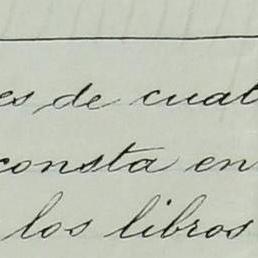 es de cuat
consta en
los libros